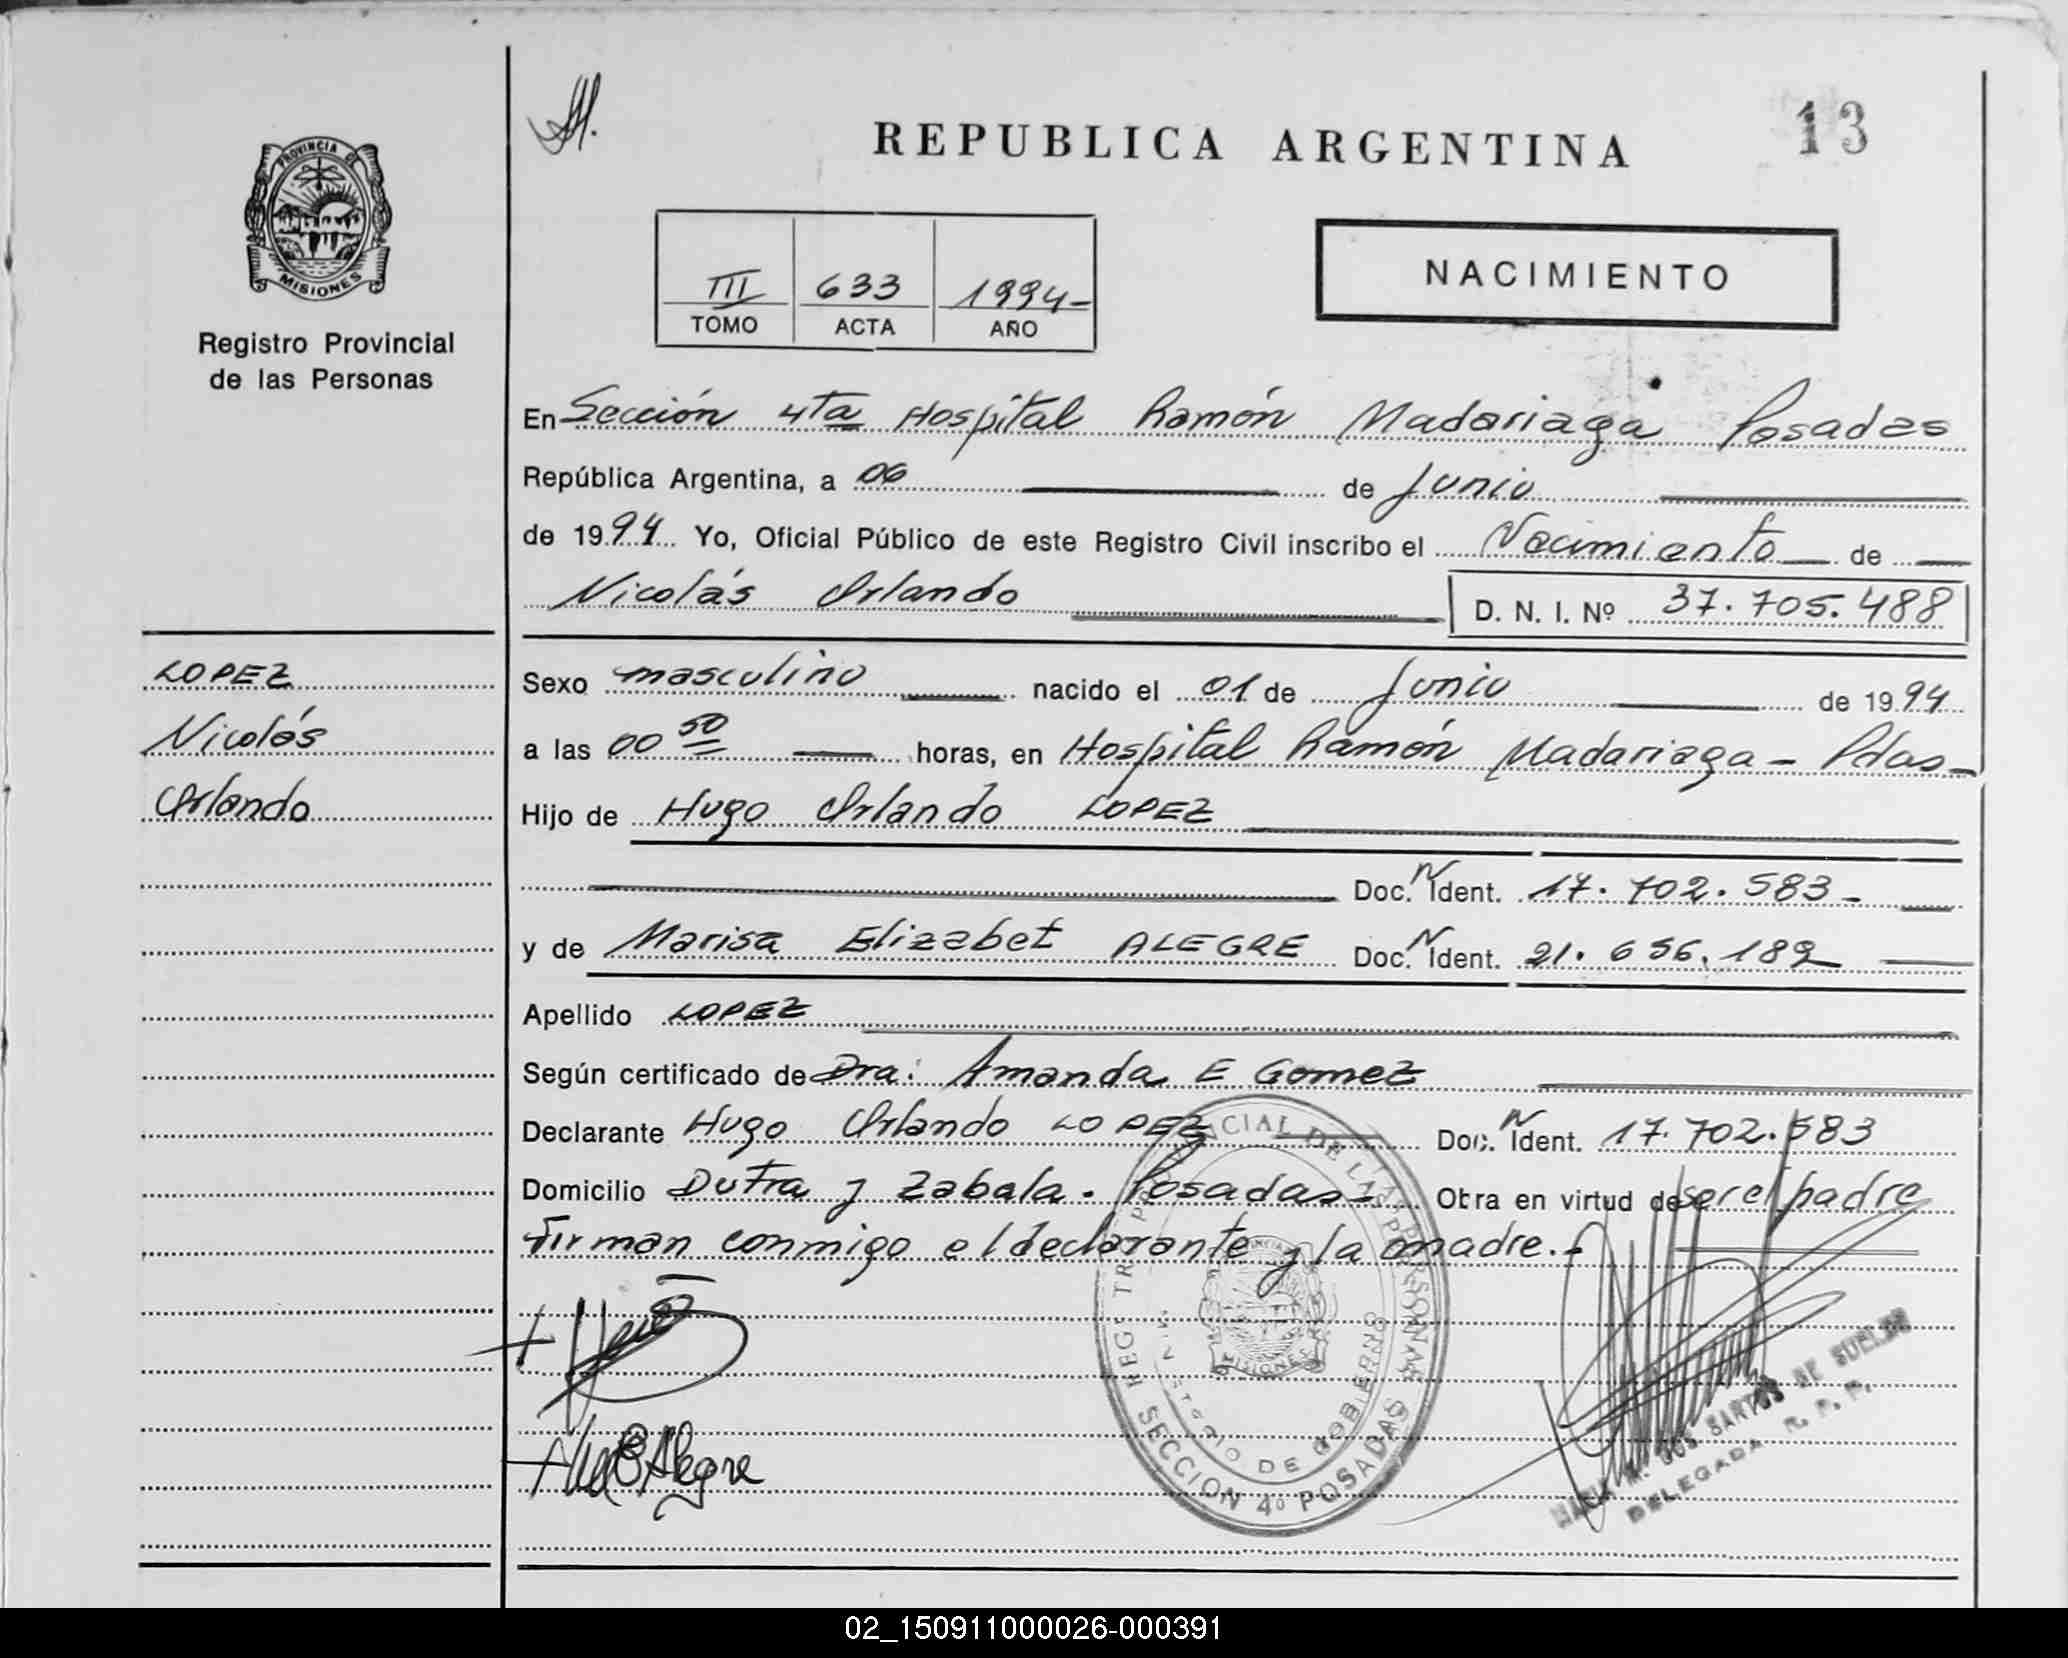 13
REPUBLICA ARGENTINA
PROVINCIA DE
MISIONES
Registro Provincial
de las Personas
III 633 1994-
TOMO ACTA AÑO
NACIMIENTO
En Sección 4ta Hospital Ramón Madariaga Posadas
República Argentina, a 06 de Junio
de 1994 Yo, Oficial Público de este Registro Civil inscribo el Nacimiento de
Nicolás Orlando D. N. I. Nº 37.705.488
LOPEZ
Nicolás
Orlando
Sexo masculino nacido el 01 de Junio de 1994
a las 00 50 horas, en Hospital Ramón Madariaga - Pdas-
Hijo de Hugo Orlando LOPEZ
Doc. N Ident. 17.702.583-
y de Marisa Elizabet ALEGRE Doc. N Ident. 21.656.189
Apellido LOPEZ
Según certificado de Dra: Amanda E Gomez
Declarante Hugo Orlando LOPEZ Doc. N Ident. 17.702.583
Domicilio Dutra y Zabala. Posadas- Obra en virtud de ser el padre
Firman conmigo el declarante y la madre.-
REGISTRO PROVINCIAL DE LAS PERSONAS
MINISTERIO DE GOBIERNO
MISIONES
SECCION 4º POSADAS
Alegre
DOS SANTOS DE
DELEGADA R. P. P.
02_150911000026-000391